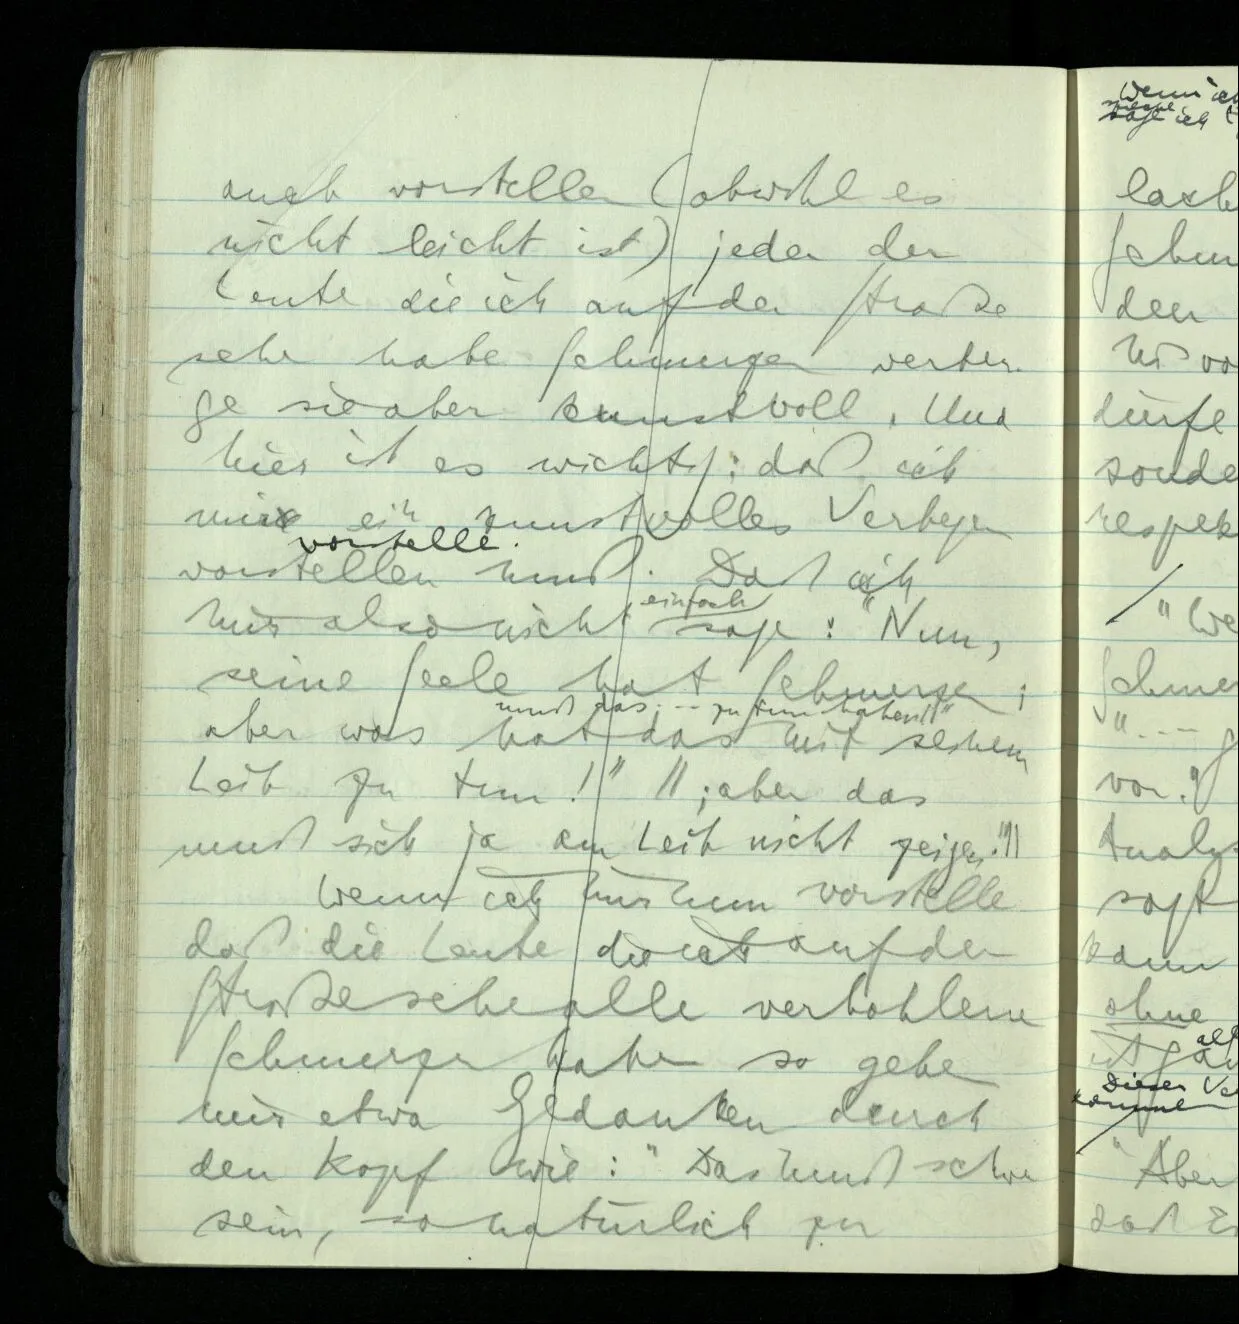 auch vorstellen (obwohl es
nicht leicht ist) jeder der
Leute die ich auf der Straße
sehe habe Schmerzen verber-
ge sie aber kunstvoll. Und
hier ist es wichtig: daß ich
mir ein kunstvolles Verbergen
vorstelle.
vorstellen muß. Daß ich
einfach
mir also nicht sage: "Nun,
seine Seele hat Schmerzen;
muß das --- zu tun haben!"
aber was hat das mit seinem
Leib zu tun!" // ; aber das
muß sich ja am Leib nicht zeigen!"//
Wenn ich mir nun vorstelle
daß die Leute die ich auf der
Straße sehe alle verhohlene
Schmerzen haben so gehen
mir etwa Gedanken durch
den Kopf wie: "Das muß schwer
sein, so natürlich zu
Wenn ich
ich
den
dürfe
"We
"---
vor"
sagt
kann
ohne
Dieser
"Aber
daß